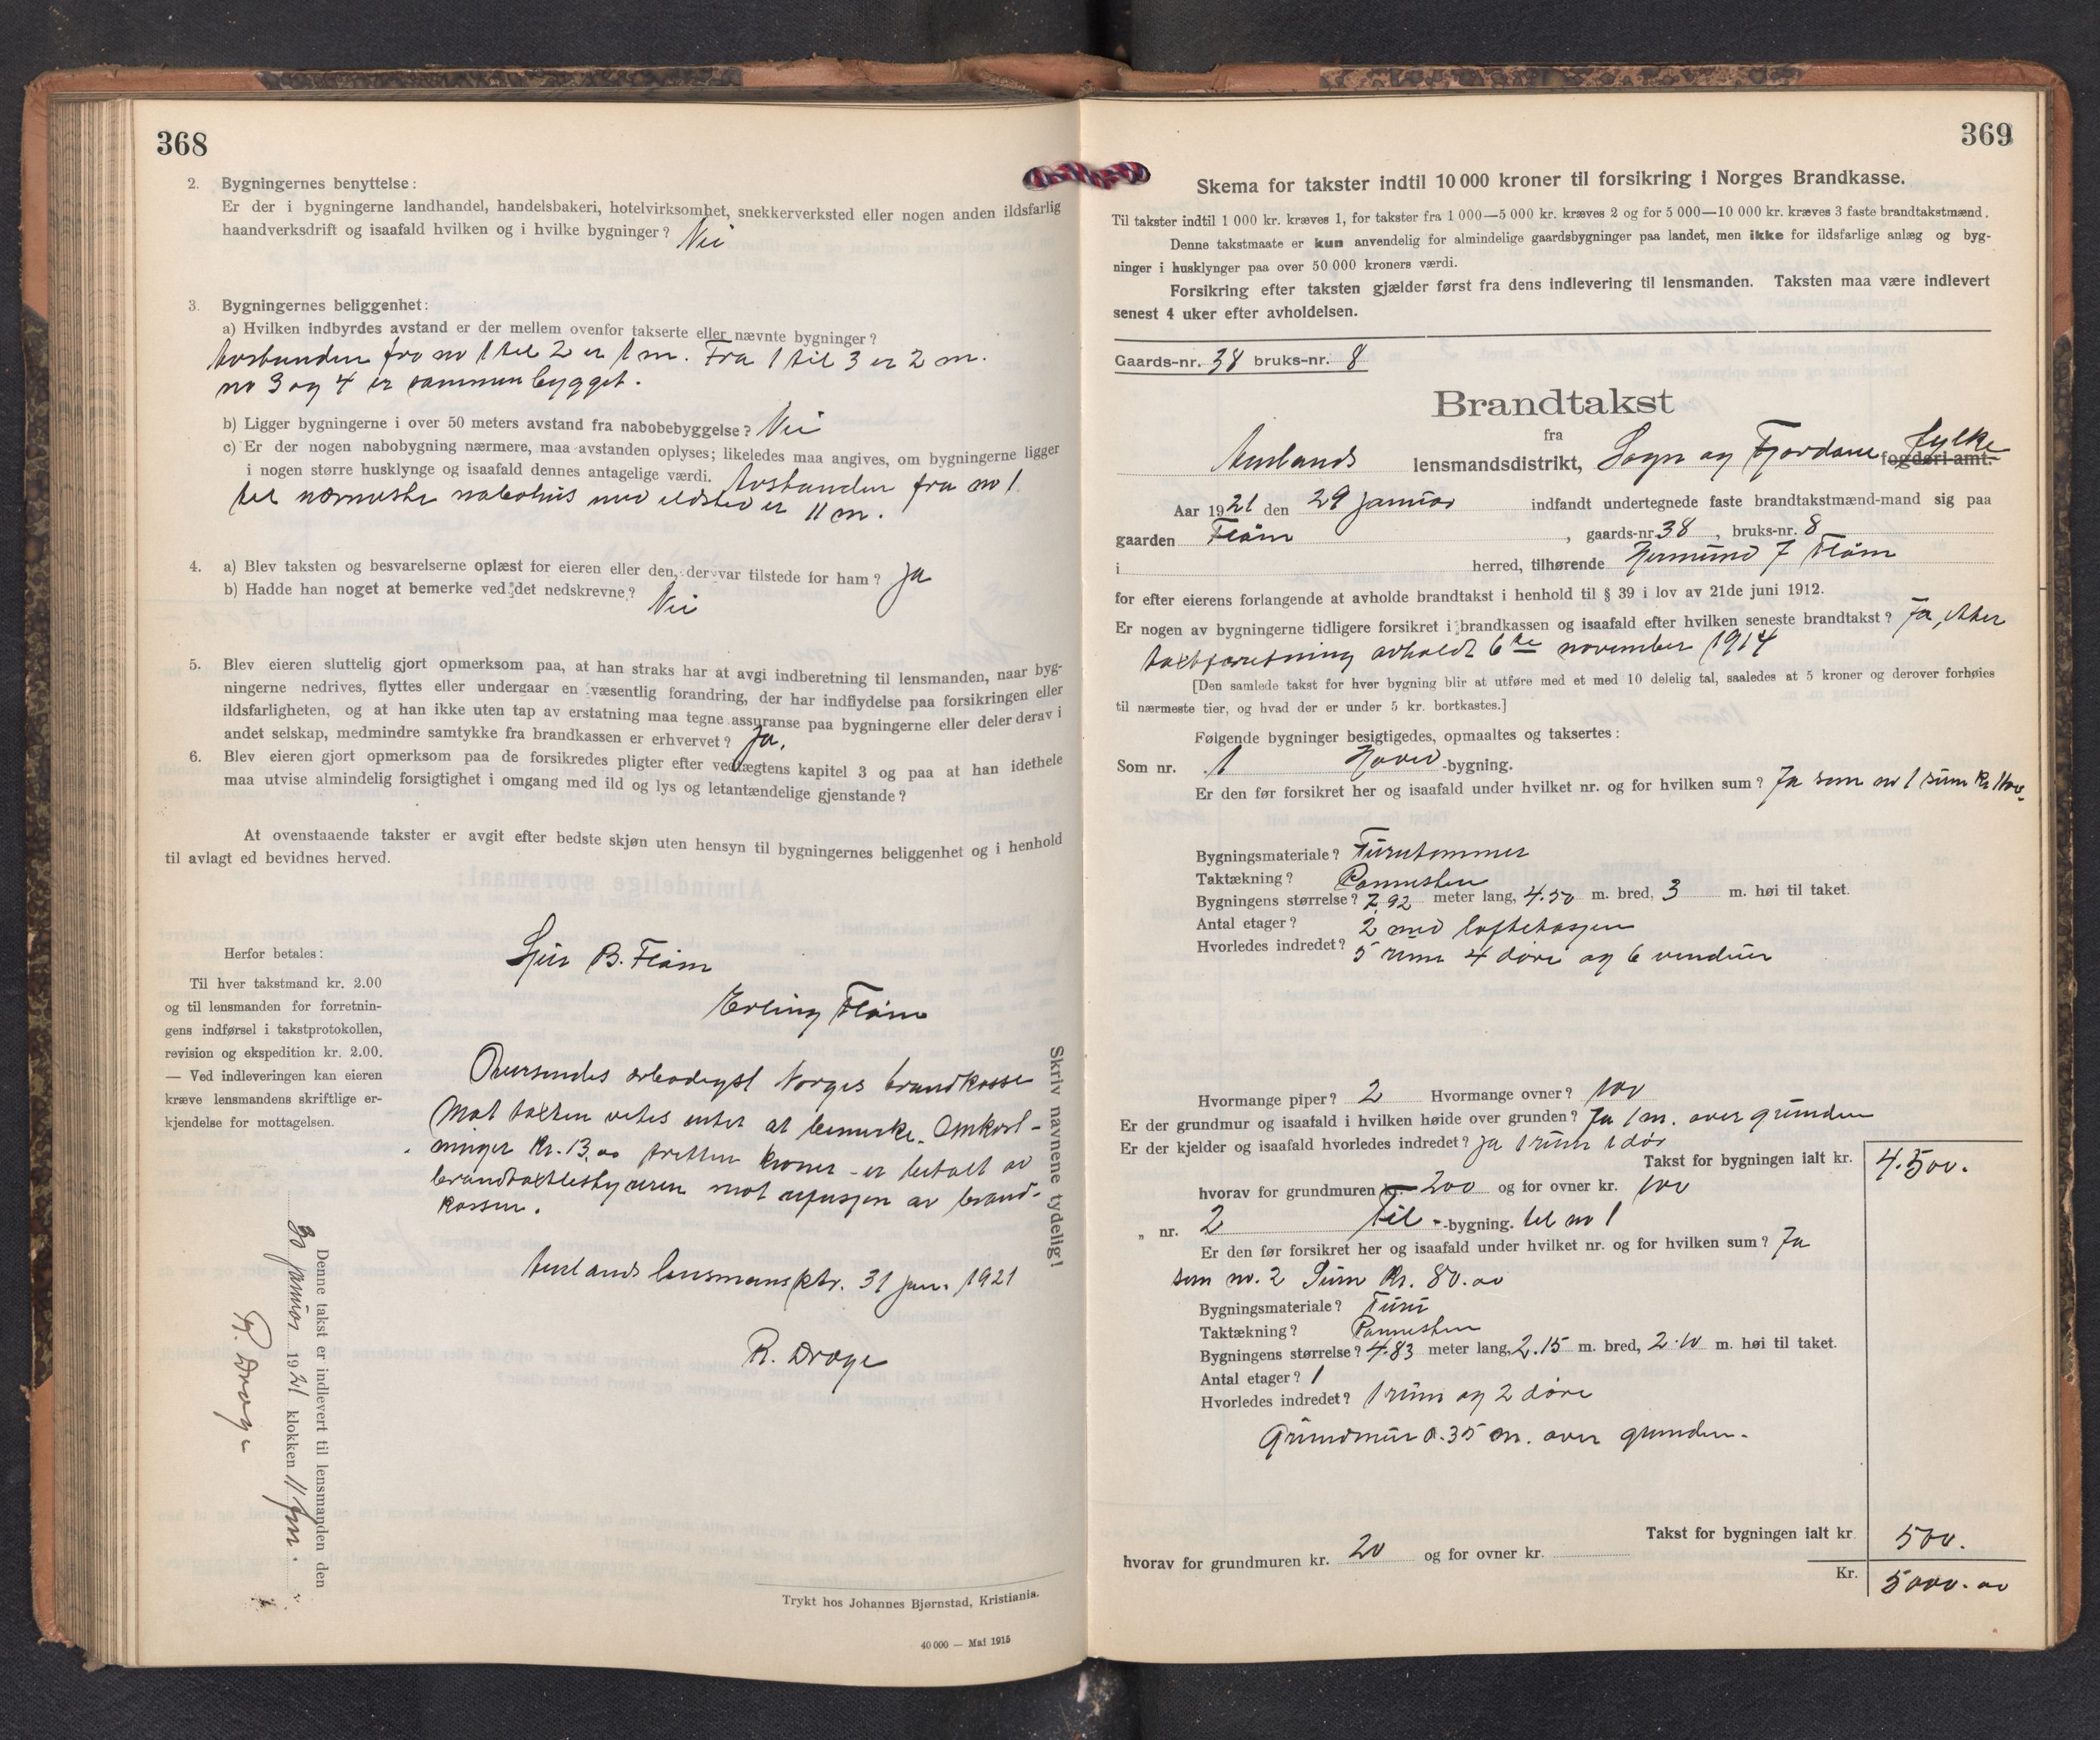 368
2. Bygningernes benyttelse:
Er der i bygningerne landhandel, handelsbakeri, hotelvirksomhet, snekkerverksted eller nogen anden ildsfarlig
haandverksdrift og isaafald hvilken og i hvilke bygninger? Nei
3. Bygningernes beliggenhet:
a) Hvilken indbyrdes avstand er der mellem ovenfor takserte eller nævnte bygninger?
Avstanden fra no 1 til 2 er 1 m. Fra 1 til 3 er 2 m.
no 3 og 4 er sammenbygget.
b) Ligger bygningerne i over 50 meters avstand fra nabobebyggelse? Nei
c) Er der nogen nabobygning nærmere, maa avstanden oplyses; likeledes maa angives, om bygningerne ligger
i nogen større husklynge og isaafald dennes antagelige værdi. Avstanden fra no 1
til nærmeste nabohus med ildsted er 11 m.
4. a) Blev taksten og besvarelserne oplæst for eieren eller den, der var tilstede for ham? Ja
b) Hadde han noget at bemerke ved det nedskrevne? Nei
5. Blev eieren sluttelig gjort opmerksom paa, at han straks har at avgi indberetning til lensmanden, naar byg-
ningerne nedrives, flyttes eller undergaar en væsentlig forandring, der har indflydelse paa forsikringen eller
ildsfarligheten, og at han ikke uten tap av erstatning maa tegne assuranse paa bygningerne eller deler derav i
andet selskap, medmindre samtykke fra brandkassen er erhvervet? Ja.
6. Blev eieren gjort opmerksom paa de forsikredes pligter efter vedtægtens kapitel 3 og paa at han idethele
maa utvise almindelig forsigtighet i omgang med ild og lys og letantændelige gjenstande?
At ovenstaaende takster er avgit efter bedste skjøn uten hensyn til bygningernes beliggenhet og i henhold
til avlagt ed bevidnes herved.
Sjur B. Flåm
Erling Flåm
Herfor betales:
Til hver takstmand kr. 2.00
og til lensmanden for forretnin-
gens indførsel i takstprotokollen,
revision og ekspedition kr. 2.00.
— Ved indleveringen kan eieren
kræve lensmandens skriftlige er-
kjendelse for mottagelsen.
Oversendes ærbødigst Norges brandkasse
Mot taxten vites intet at bemerke. Omkost-
ninger kr. 13.00 tretten kroner - er betalt av
brandtaxtbestyreren mot refusjon av brand-
kassen.
Aurlands lensmansktr. 31 jan. 1921
R. Drage
Skriv navnene tydelig!
Denne takst er indlevert til lensmanden den
30 januar 1921 klokken 11 fm.
R. Drage
Trykt hos Johannes Bjørnstad, Kristiania.
40 000 — Mai 1915
369
Skema for takster indtil 10 000 kroner til forsikring i Norges Brandkasse.
Til takster indtil 1 000 kr. kræves 1, for takster fra 1 000—5 000 kr. kræves 2 og for 5 000—10 000 kr. kræves 3 faste brandtakstmænd.
Denne takstmaate er kun anvendelig for almindelige gaardsbygninger paa landet, men ikke for ildsfarlige anlæg og byg-
ninger i husklynger paa over 50 000 kroners værdi.
Forsikring efter taksten gjælder først fra dens indlevering til lensmanden. Taksten maa være indlevert
senest 4 uker efter avholdelsen.
Gaards-nr. 38 bruks-nr. 8
Brandtakst
fra
Aurlands lensmandsdistrikt, Sogn og Fjordane fylke fogderi amt.
Aar 1921 den 29 januar indfandt undertegnede faste brandtakstmænd-mand sig paa
gaarden Flåm, gaards-nr. 38, bruks-nr. 8
i herred, tilhørende Hermund J Flåm
for efter eierens forlangende at avholde brandtakst i henhold til § 39 i lov av 21de juni 1912.
Er nogen av bygningerne tidligere forsikret i brandkassen og isaafald efter hvilken seneste brandtakst? Ja, etter
taxtforretning avholdt 6te november 1914
[Den samlede takst for hver bygning blir at utføre med et med 10 delelig tal, saaledes at 5 kroner og derover forhøies
til nærmeste tier, og hvad der er under 5 kr. bortkastes.]
Følgende bygninger besigtigedes, opmaaltes og taksertes:
Som nr. 1 Hoved-bygning.
Er den før forsikret her og isaafald under hvilket nr. og for hvilken sum? Ja som no 1 sum Kr 1100.
Bygningsmateriale? Furutømmer
Taktækning? Pannesten
Bygningens størrelse? 7.92 meter lang, 4.50 m. bred, 3 m. høi til taket.
Antal etager? 2 med loftetasjen
Hvorledes indredet? 5 rum 4 døre og 6 vinduer
Hvormange piper? 2 Hvormange ovner? 100
Er der grundmur og isaafald i hvilken høide over grunden? Ja 1 m. over grunden
Er der kjelder og isaafald hvorledes indredet? ja 1 rum 1 dør
Takst for bygningen ialt kr. 4.500.
hvorav for grundmuren kr. 200 og for ovner kr. 100
„ nr. 2 Til-bygning. til no 1
Er den før forsikret her og isaafald under hvilket nr. og for hvilken sum? Ja
som no. 2 Sum Kr. 80.00
Bygningsmateriale? Furu
Taktækning? Pannesten
Bygningens størrelse? 4.83 meter lang, 2.15 m. bred, 2.10 m. høi til taket.
Antal etager? 1
Hvorledes indredet? 1 rum og 2 døre
Grundmur 0.35 m. over grunden.
Takst for bygningen ialt kr. 500.
hvorav for grundmuren kr. 20 og for ovner kr.
Kr. 5000.00